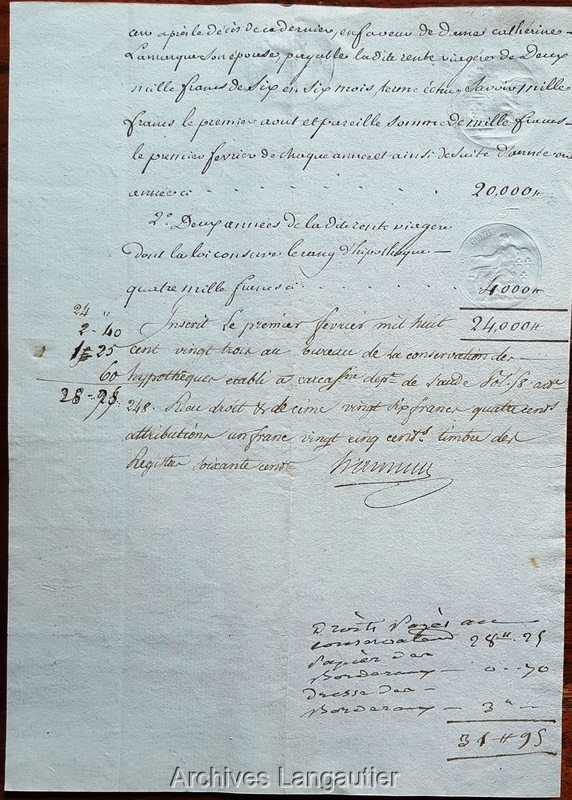 ou après le décès de ce dernier, en faveur de dame catherine
Lamarque son épouse, payable la dite rente viagère de Deux
mille francs de six en six mois, terme échu, Savoir mille
francs le premier aout et pareille somme de mille francs
le premier fevrier de chaque année et ainsi de suite d'année en
année ci . . . . . . . 20,000 #
2° Deux années de la dite rente viagère
dont la loi conserve le rang d'hipothèque —
quatre mille francs ci . . . . . 4,000 #
24,000 #
24 "
2 - 40
1 - 25
60
28 - 25
Inscrit le premier fevrier mil huit
cent vingt trois au bureau de la conservation des
hypothèques etabli à carcassne depт. de l'aude vol. 58 art.
248. Reçu droit & decime vingt six francs quatre cents
attributions un franc vingt cinq cents timbre des
Registres soixante cents
Droits Payés au
conservateur 28 # 25
Papier des
Bordereaux — 0 - 70
Dresse des —
Bordereaux — 3 # —
31 # 95
Archives Langautier